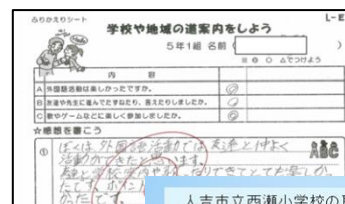 ふりかえりシート
L-E
学校や地域の道案内をしよう
5年1組 名前（ ）
※◎ ○ △でつけよう
内 容
A 外国語活動は楽しかったですか。 ◎
B 友達や先生に進んでたずねたり、答えたりしましたか。 ○
C 歌やゲームなどに楽しく参加しましたか。 ◎
☆感想を書こう
① ぼくは、外国語活動では友達と仲よく
ABC
活動ができたと思います。
人吉市立西瀬小学校の